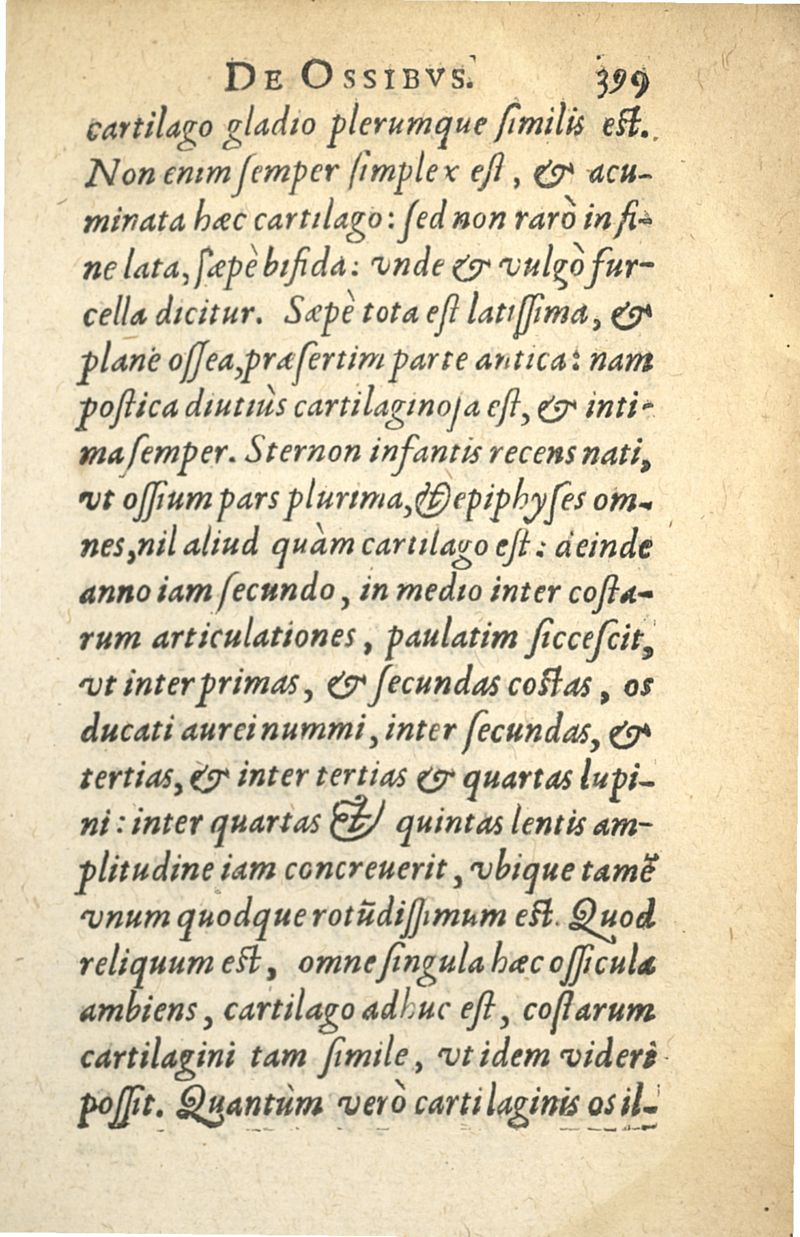 DE OSSIBVS. 399
cartilago gladio plerumque ſimilis est.
Non enim ſemper ſimplex eſt, & acu-
minata hæc cartilago: ſed non rarò in fi-
ne lata, ſæpè bifida: vnde & vulgò fur-
cella dicitur. Sæpè tota eſt latiſſima, &
plane oſſea, præſertim parte antica: nam
poſtica diutiùs cartilaginoſa eſt, & inti-
ma ſemper. Sternon infantis recens nati,
vt oſſium pars plurima, & epiphyſes om-
nes, nil aliud quàm cartilago eſt: deinde
anno iam ſecundo, in medio inter coſta-
rum articulationes, paulatim ſicceſcit,
vt inter primas, & ſecundas costas, os
ducati aurei nummi, inter ſecundas, &
tertias, & inter tertias & quartas lupi-
ni: inter quartas & quintas lentis am-
plitudine iam concreuerit, vbique tamē
vnum quodque rotūdiſſimum est. Quod
reliquum est, omne ſingula hæc oſſicula
ambiens, cartilago adhuc eſt, coſtarum
cartilagini tam ſimile, vt idem videri
poſſit. Quantùm verò cartilaginis os il-